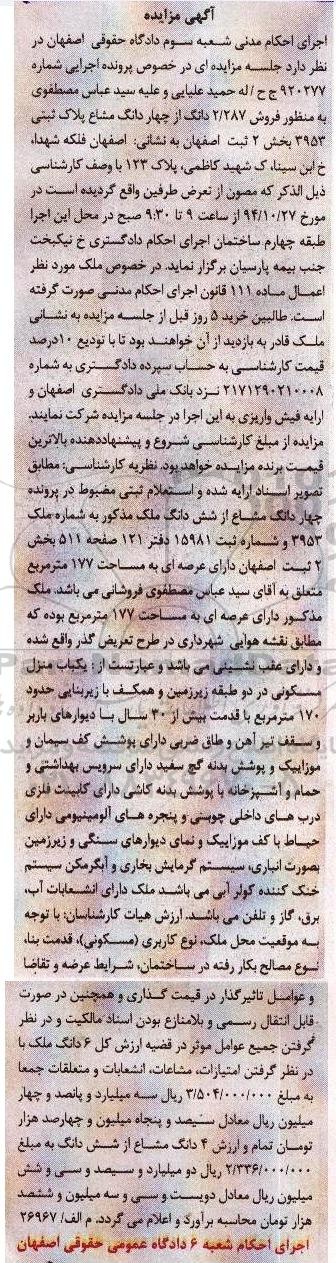 آگهی مزایده
اجرای احکام مدنی شعبه سوم دادگاه حقوقی اصفهان در
نظر دارد جلسه مزایده ای در خصوص پرونده اجرایی شماره
۹۲۰۲۷۷ ج ح /له حمید علیایی و علیه سید عباس مصطفوی
به منظور فروش ۲/۲۸۷ دانگ از چهار دانگ مشاع پلاک ثبتی
۳۹۵۳ بخش ۲ ثبت اصفهان به نشانی: اصفهان فلکه شهدا،
خ ابن سینا، ک شهید کاظمی، پلاک ۱۲۳ با وصف کارشناسی
ذیل الذکر که مصون از تعرض طرفین واقع گردیده است در
مورخ ۹۴/۱۰/۲۷ از ساعت ۹ تا ۹:۳۰ صبح در محل این اجرا
طبقه چهارم ساختمان اجرای احکام دادگستری خ نیکبخت
جنب بیمه پارسیان برگزار نماید. در خصوص ملک مورد نظر
اعمال ماده ۱۱۱ قانون اجرای احکام مدنی صورت گرفته
است. طالبین خرید ۵ روز قبل از جلسه مزایده به نشانی
ملک قادر به بازدید از آن خواهند بود تا با تودیع ۱۰درصد
قیمت کارشناسی به حساب سپرده دادگستری به شماره
۲۱۷۱۲۹۰۲۱۰۰۰۸ نزد بانک ملی دادگستری اصفهان و
ارایه فیش واریزی به این اجرا در جلسه مزایده شرکت نمایند.
مزایده از مبلغ کارشناسی شروع و پیشنهاددهنده بالاترین
قیمت برنده مزایده خواهد بود. نظریه کارشناسی: مطابق
تصویر اسناد ارایه شده و استعلام ثبتی مضبوط در پرونده
چهار دانگ مشاع از شش دانگ ملک مذکور به شماره ملک
۳۹۵۳ و شماره ثبت ۱۵۹۸۱ دفتر ۱۲۱ صفحه ۵۱۱ بخش
۲ ثبت اصفهان دارای عرصه ای به مساحت ۱۷۷ مترمربع
متعلق به آقای سید عباس مصطفوی فروشانی می باشد. ملک
مذکور دارای عرصه ای به مساحت ۱۷۷ مترمربع بوده که
مطابق نقشه هوایی شهرداری در طرح تعریض گذر واقع شده
و دارای عقب نشینی می باشد و عبارتست از: یکباب منزل
مسکونی در دو طبقه زیرزمین و همکف با زیربنایی حدود
۱۷۰ مترمربع با قدمت بیش از ۳۰ سال با دیوارهای باربر
و سقف تیر آهن و طاق ضربی دارای پوشش کف سیمان و
موزاییک و پوشش بدنه گچ سفید دارای سرویس بهداشتی و
حمام و آشپزخانه با پوشش بدنه کاشی دارای کابینت فلزی
درب های داخلی چوبی و پنجره های آلومینیومی دارای
حیاط با کف موزاییک و نمای دیوارهای سنگی و زیرزمین
بصورت انباری، سیستم گرمایش بخاری و آبگرمکن سیستم
خنک کننده کولر آبی می باشد ملک دارای انشعابات آب،
برق، گاز و تلفن می باشد. ارزش هیات کارشناسان: با توجه
به موقعیت محل ملک، نوع کاربری (مسکونی)، قدمت بنا،
نوع مصالح بکار رفته در ساختمان، شرایط عرضه و تقاضا
و عوامل تاثیرگذار در قیمت گذاری و همچنین در صورت
قابل انتقال رسمی و بلامنازع بودن اسناد مالکیت و در نظر
گرفتن جمیع عوامل موثر در قضیه ارزش کل ۶ دانگ ملک با
در نظر گرفتن امتیازات، مشاعات، انشعابات و متعلقات جمعا
به مبلغ ۳/۵۰۴/۰۰۰/۰۰۰ ریال سه میلیارد و پانصد و چهار
میلیون ریال معادل سیصد و پنجاه میلیون و چهارصد هزار
تومان تمام و ارزش ۴ دانگ مشاع از شش دانگ به مبلغ
۲/۳۳۶/۰۰۰/۰۰۰ ریال دو میلیارد و سیصد و سی و شش
میلیون ریال معادل دویست و سی و سه میلیون و ششصد
هزار تومان محاسبه برآورد و اعلام می گردد. م الف/ ۲۶۹۶۷
اجرای احکام شعبه ۶ دادگاه عمومی حقوقی اصفهان